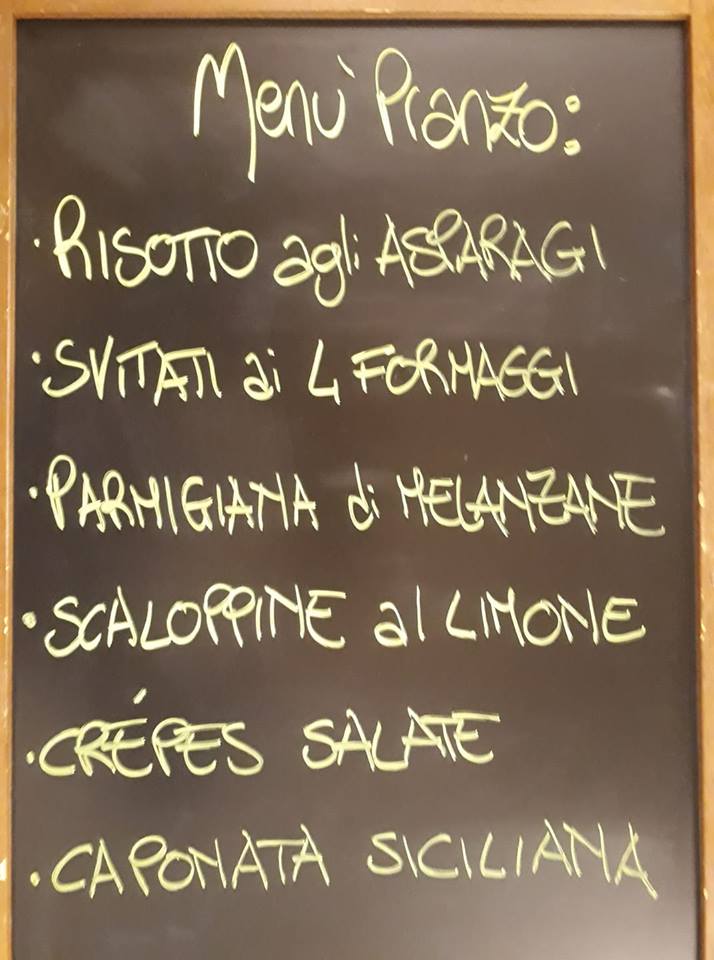 Menù Pranzo:
· RISOTTO agli ASPARAGI
· SVITATI ai 4 FORMAGGI
· PARMIGIANA di MELANZANE
· SCALOPPINE al LIMONE
· CRÉPES SALATE
· CAPONATA SICILIANA